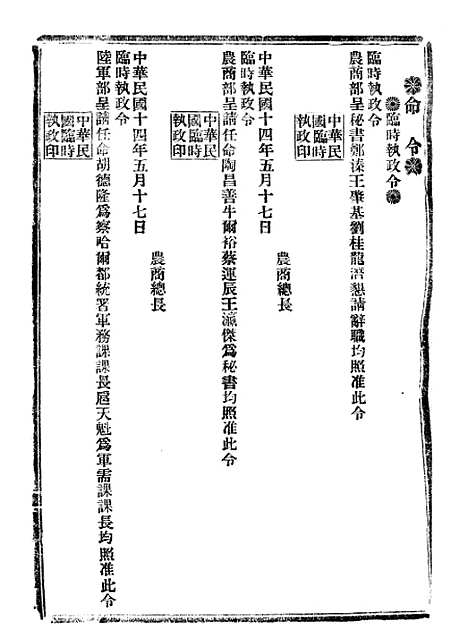 命令
臨時執政令
臨時執政令
農商部呈秘書鄭溱王肇基劉桂龍濳懇請辭職均照准此令
中華民
國臨時
執政印
農商總長
中華民國十四年五月十七日
臨時執政令
農商部呈請任命陶昌善牛爾裕蔡運辰王瀛傑爲秘書均照准此令
中華民
國臨時
執政印
農商總長
中華民國十四年五月十七日
臨時執政令
陸軍部呈請任命胡德隆爲察哈爾都統署軍務課課長屆天魁爲軍需課課長均照准此令
中華民
國臨時
執政印